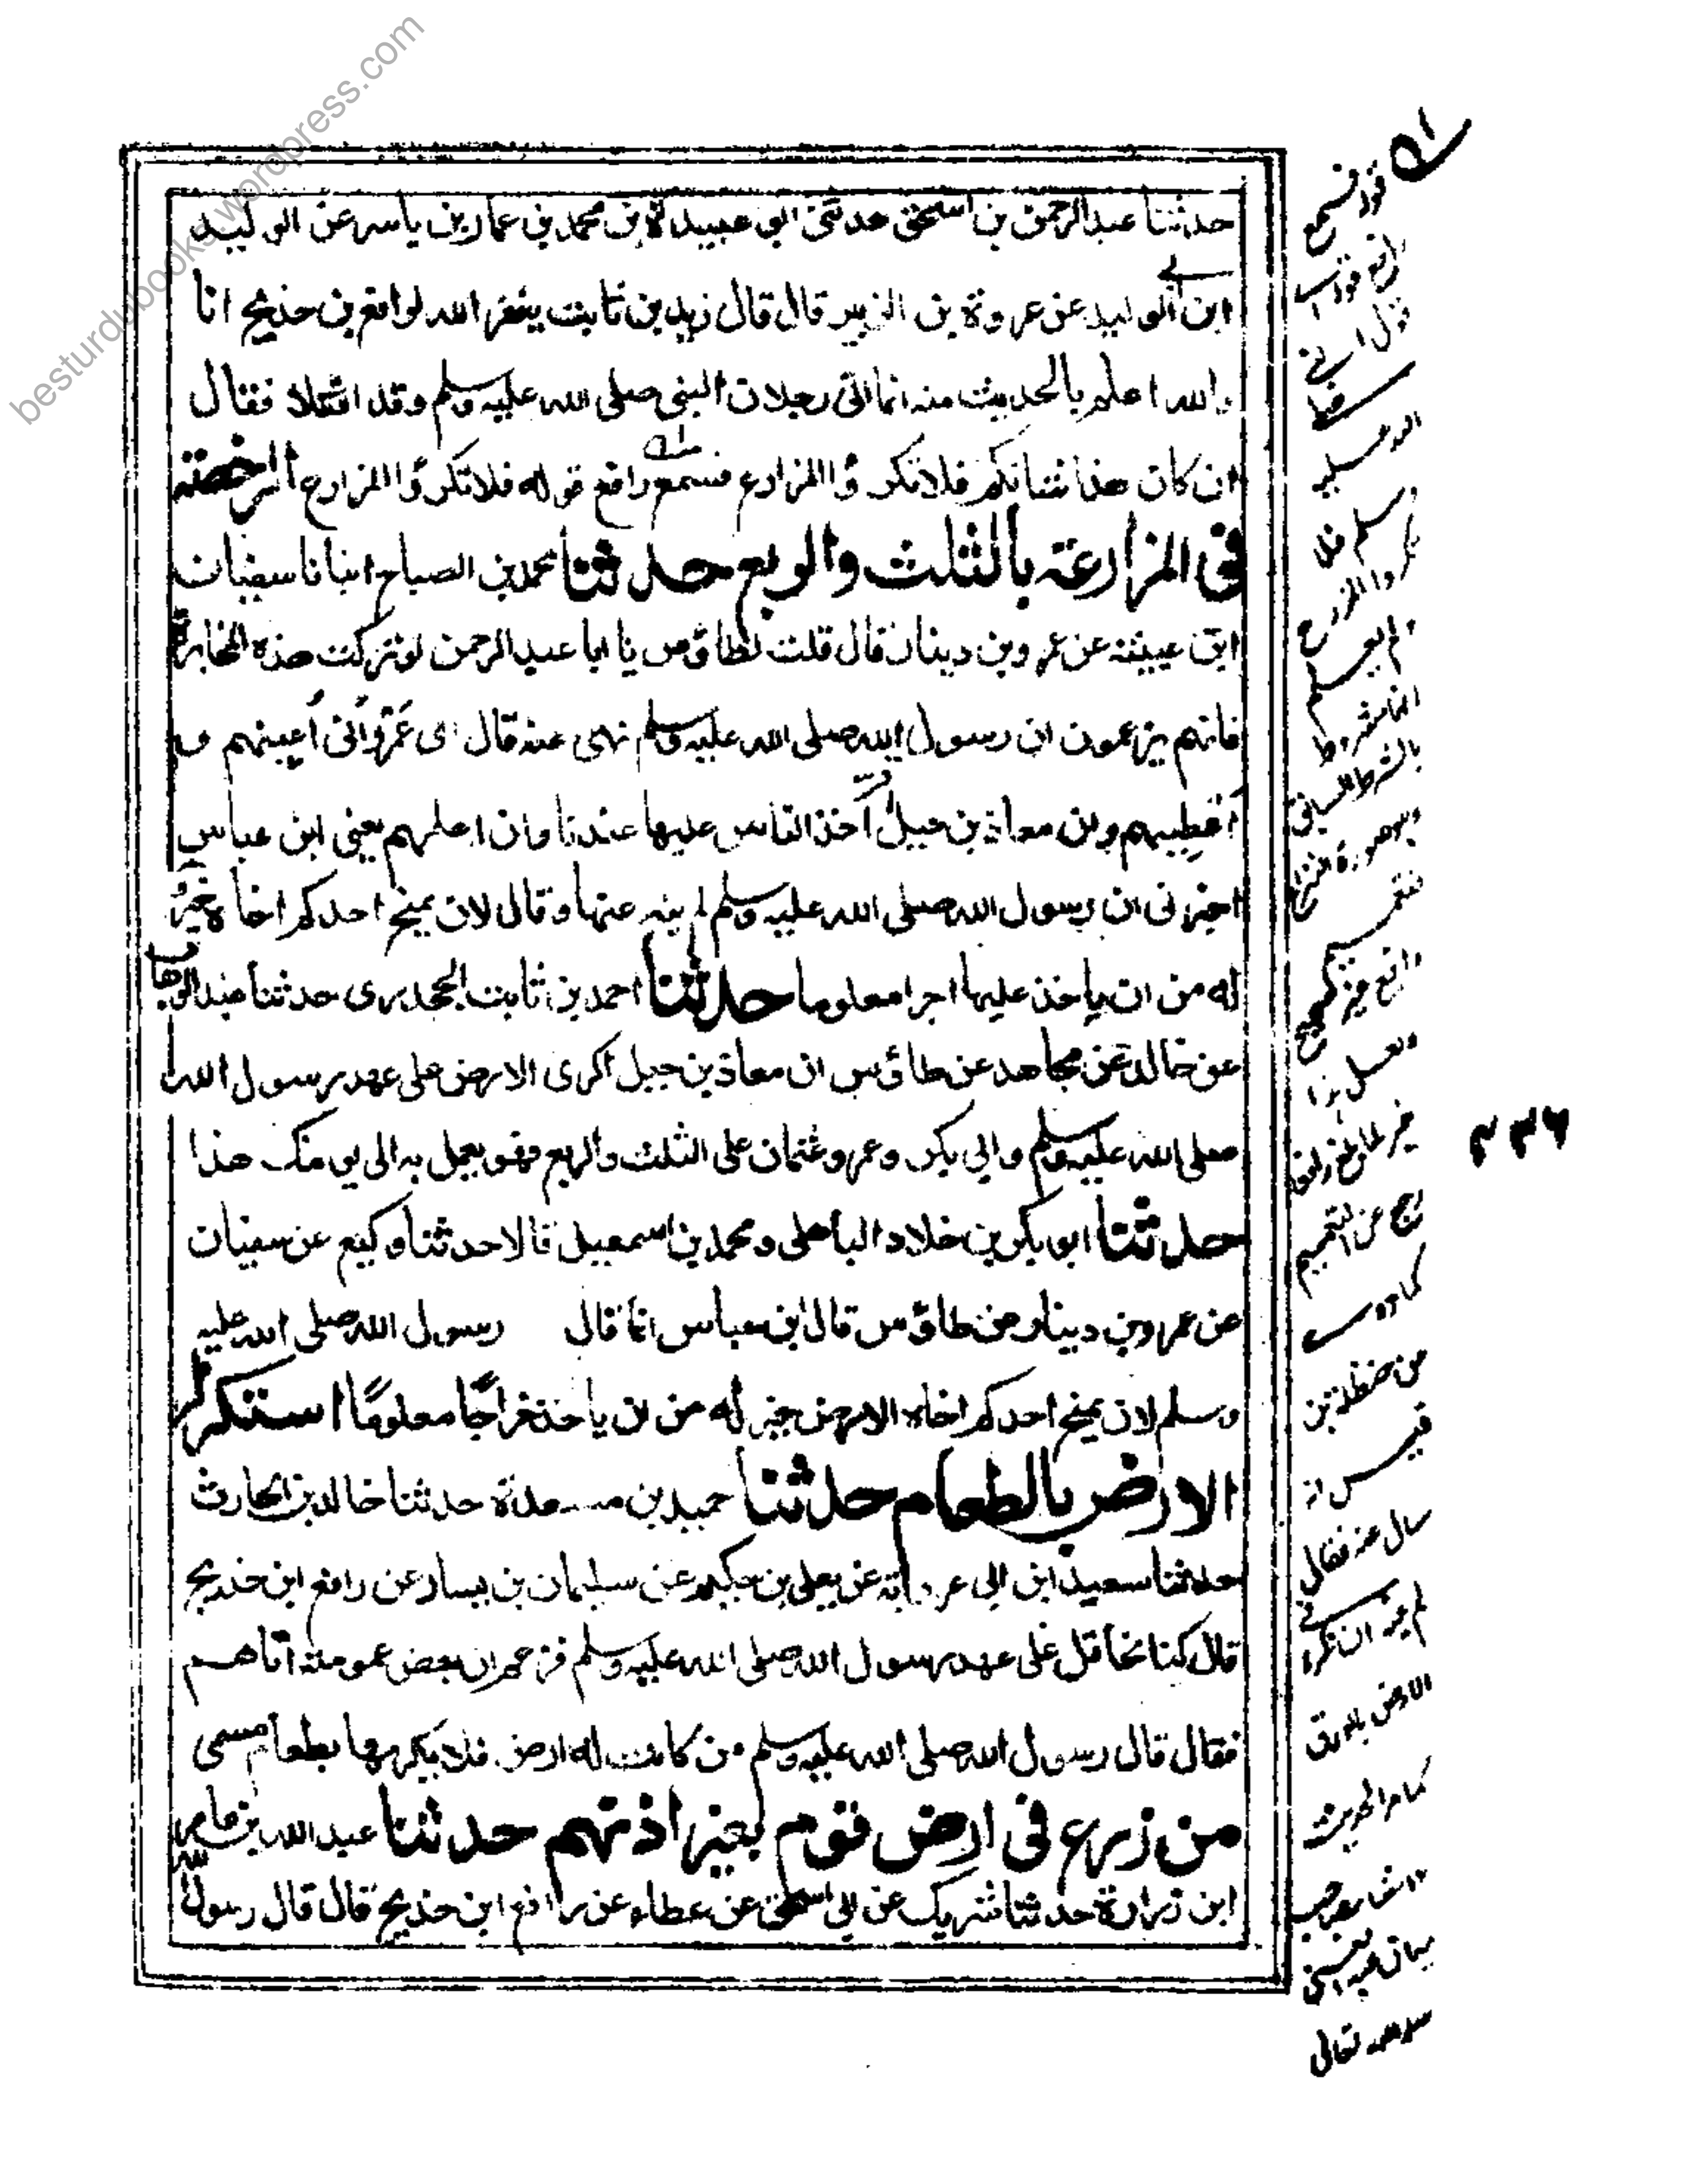 حدثنا عبدالرحمن بن اسحق حدثنی ابی عبیدة بن محمد بن عمار بن یاسر عن الولید
ابن ابی الولید عن عروة بن الزبیر قال قال زید بن ثابت یغفر الله لرافع بن خدیج انا
والله اعلم بالحدیث منه انما اتی رجلان النبی صلی الله علیه وسلم وقد اقتتلا فقال
ان کان هذا شانکم فلا تکروا المزارع فسمع رافع قوله فلا تکروا المزارع الرخصة
فی المزارعة بالثلث والربع حدثنا محمد بن الصباح انبانا سفیان
ابن عیینة عن عمرو بن دینار قال قلت لطاؤس یا ابا عبدالرحمن لو ترکت هذه المخابرة
فانهم یزعمون ان رسول الله صلی الله علیه وسلم نهی عنه قال ای عَمْرو اُنی اُعینهم و
اُعْطِیهم وان معاذ بن جبل اَخذ الناس علیها عندنا وان اعلمهم یعنی ابن عباس
اخبرنی ان رسول الله صلی الله علیه وسلم لم ینه عنها وقال لان یمنح احدکم اخاه خیر
له من ان یاخذ علیها اجرا معلوما حدثنا احمد بن ثابت الجحدری حدثنا عبدالوهاب
عن خالد عن مجاهد عن طاؤس ان معاذ بن جبل اکری الارض علی عهد رسول الله
صلی الله علیه وسلم وابی بکر وعمر وعثمان علی الثلث والربع فهو یعمل به الی یومک هذا
حدثنا ابو بکر بن خلاد الباهلی ومحمد بن اسمعیل قالا حدثنا وکیع عن سفیان
عن عمرو بن دینار عن طاؤس قال ابن عباس انما قال رسول الله صلی الله علیه
وسلم لان یمنح احدکم اخاه الارض خیر له من ان یاخذ خراجًا معلومًا استکراء
الارض بالطعام حدثنا حمید بن مسعدة حدثنا خالد بن الحارث
حدثنا سعید ابن ابی عروبة عن یعلی بن حکیم عن سلیمان بن یسار عن رافع ابن خدیج
قال کنا نحاقل علی عهد رسول الله صلی الله علیه وسلم فزعم ان بعض عمومته اتاهم
فقال قال رسول الله صلی الله علیه وسلم من کانت له ارض فلا یکریها بطعام مسمی
من زرع فی ارض قوم بغیر اذنهم حدثنا عبد الله بن عامر
ابن زرارة حدثنا شریک عن ابی اسحق عن عطاء عن رافع ابن خدیج قال قال رسول الله
قوله فسمع
رافع قوله
الله علیه
وسلم فلا
تکروا المزارع
ولم یعلم
انما مشروط
بالشرط السابق
من حنظلة بن
قیس انه
سال عنه فقال
الارض بالورق
تعالی
۳۳۶
besturdubooks.wordpress.com